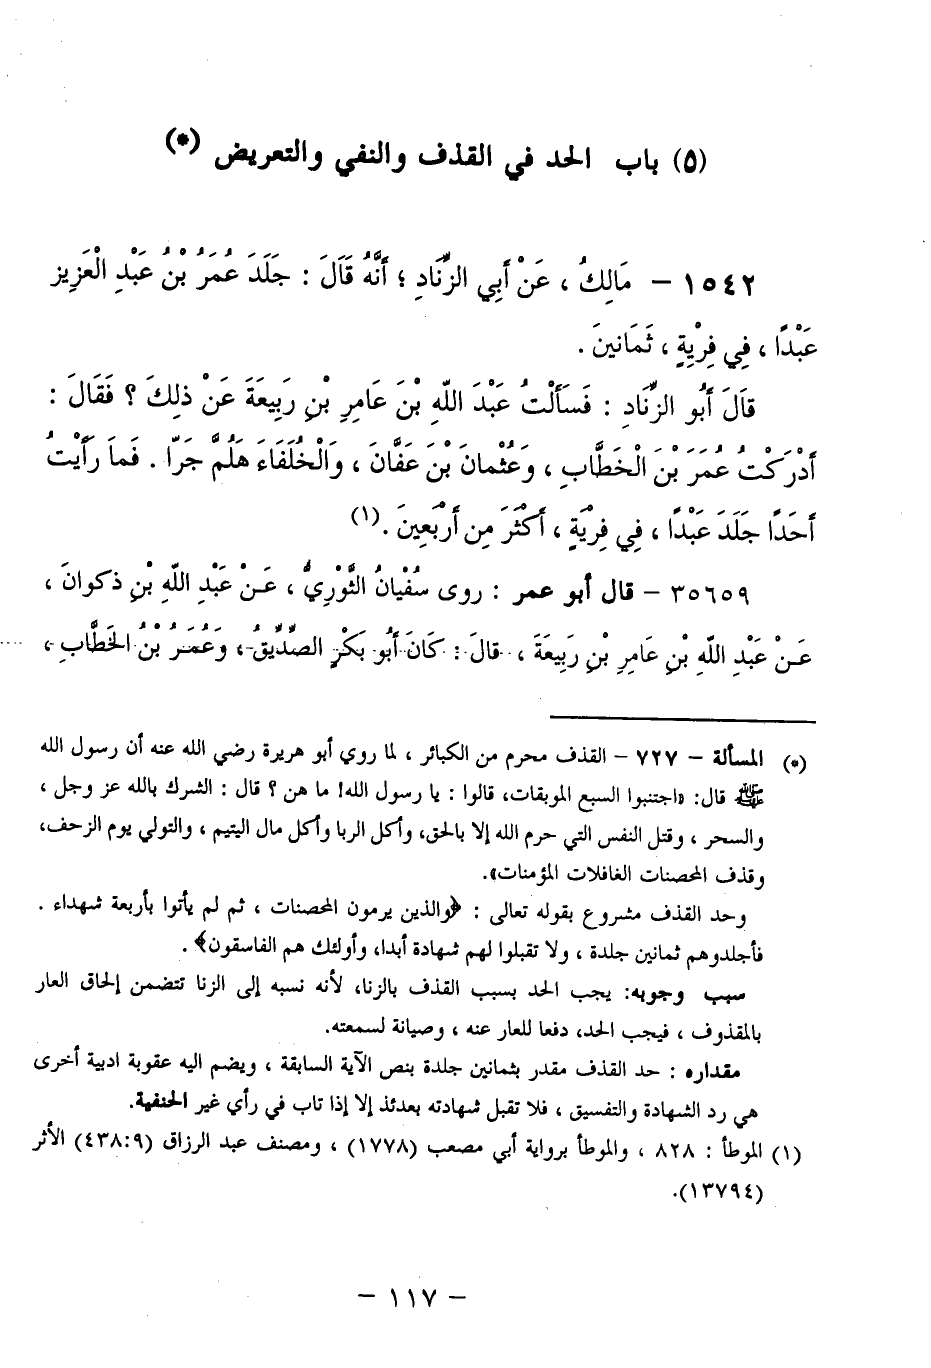 (٥) باب الحد في القذف والنفي والتعريض (*)
١٥٤٢ – مَالِكُ ، عَنْ أَبِي الزِّنَادِ ؛ أَنَّهُ قَالَ : جَلَدَ عُمَرُ بْنُ عَبْدِ الْعَزِيزِ
عَبْدًا ، فِي فِرْيَةٍ ، ثَمَانينَ .
قَالَ أَبُو الزِّنَادِ : فَسَأَلْتُ عَبْدَ اللَّهِ بْنَ عَامِرِ بْنِ رَبِيعَةَ عَنْ ذلِكَ ؟ فَقَالَ :
أَدْرَكْتُ عُمَرَ بْنَ الْخَطَّابِ ، وَعُثْمانَ بْنَ عَفَّانَ ، وَالْخُلَفَاءَ هَلُمَّ جَرّا . فَمَا رَأَيْتُ
أَحَدًا جَلَدَ عَبْدًا ، فِي فِرْيَةٍ ، أَكْثَرَ مِن أَرْبَعِينَ .(١)
٣٥٦٥٩ – قال أبو عمر : روى سُفْيَانُ الثَّوْرِيُّ ، عَنْ عَبْدِ اللَّهِ بْنِ ذكوانَ ،
عَنْ عَبْدِ اللَّهِ بْنِ عَامِرِ بْنِ رَبِيعَةَ ، قالَ : كَانَ أَبُو بَكْرٍ الصِّدِّيقُ ، وَعُمَرُ بْنُ الخَطَّابِ ،
(*) المسألة – ٧٢٧ – القذف محرم من الكبائر ، لما روي أبو هريرة رضي الله عنه أن رسول الله
ﷺ قال: «اجتنبوا السبع الموبقات، قالوا : يا رسول الله! ما هن ؟ قال : الشرك بالله عز وجل ،
والسحر ، وقتل النفس التي حرم الله إلا بالحق، وأكل الربا وأكل مال اليتيم ، والتولي يوم الزحف،
وقذف المحصنات الغافلات المؤمنات».
وحد القذف مشروع بقوله تعالى : ﴿والذين يرمون المحصنات ، ثم لم يأتوا بأربعة شهداء .
فأجلدوهم ثمانين جلدة ، ولا تقبلوا لهم شهادة أبدا، وأولئك هم الفاسقون﴾ .
سبب وجوبه: يجب الحد بسبب القذف بالزنا، لأنه نسبه إلى الزنا تتضمن إلحاق العار
بالمقذوف ، فيجب الحد، دفعا للعار عنه ، وصيانة لسمعته.
مقداره : حد القذف مقدر بثمانين جلدة بنص الآية السابقة ، ويضم اليه عقوبة ادبية أخرى
هي رد الشهادة والتفسيق ، فلا تقبل شهادته بعدئذ إلا إذا تاب في رأي غير الحنفية.
(١) الموطأ : ٨٢٨ ، والموطأ برواية أبي مصعب (١٧٧٨) ، ومصنف عبد الرزاق (٤٣٨:٩) الأثر
(١٣٧٩٤).
– ١١٧ –